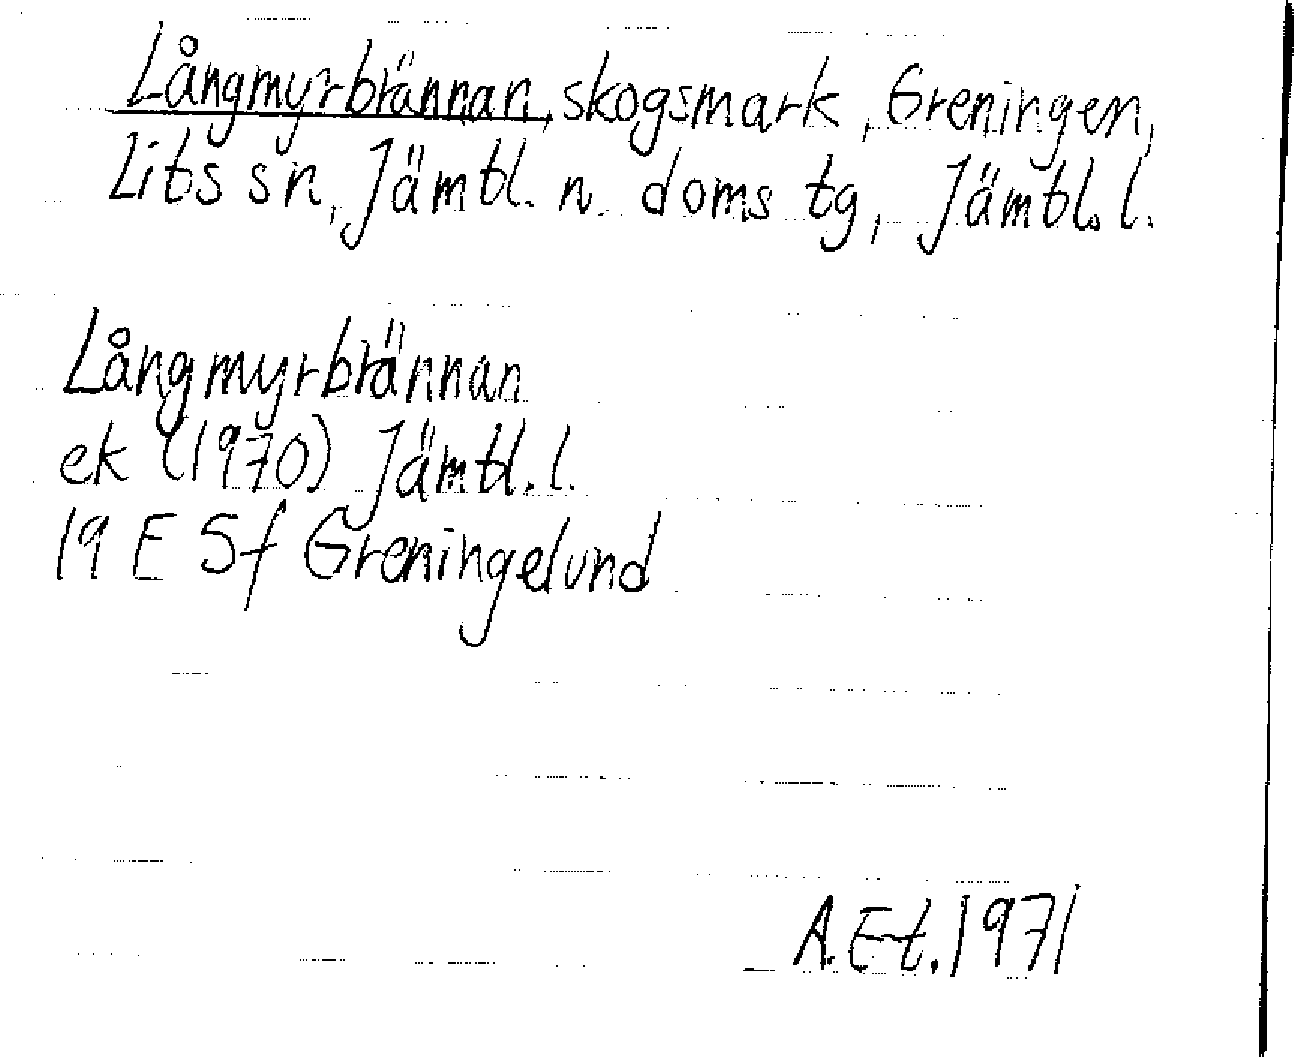 Långmyrbrännan, skogsmark, Greningen,
Lits sn, Jämtl. n. doms tg, Jämtl. l.
Långmyrbrännan
ek (1970) Jämtl. l.
19 E 5f Greningelund
A. E-t. 1971